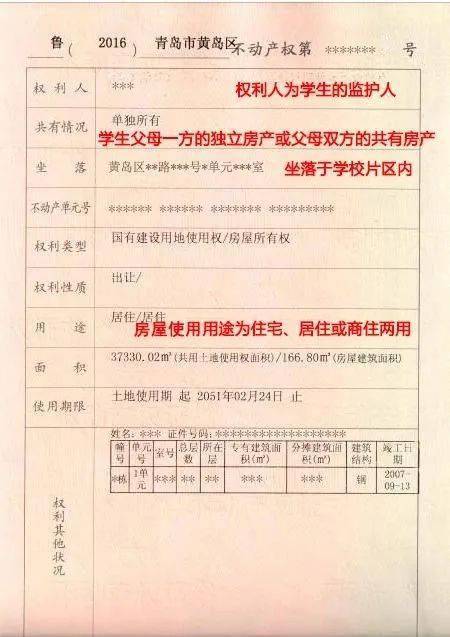 鲁 ( 2016 ) 青岛市黄岛区 不动产权第 ******* 号
权利人 *** 权利人为学生的监护人
共有情况 单独所有
学生父母一方的独立房产或父母双方的共有房产
坐落 黄岛区**路***号*单元***室 坐落于学校片区内
不动产单元号 ****** ****** ******* *********
权利类型 国有建设用地使用权/房屋所有权
权利性质 出让/
用途 居住/居住
房屋使用用途为住宅、居住或商住两用
面积 37330.02㎡(共用土地使用权面积)/166.80㎡(房屋建筑面积)
使用期限 土地使用期 起 2051年02月24日 止
权利其他状况
姓名: *** 证件号码:******************
幢号 单元号 室号 总层数 所在层 专有建筑面积(㎡) 分摊建筑面积(㎡) 建筑结构 竣工日期
*栋 1单元 *** ** ** *** *** 钢 2007-09-13